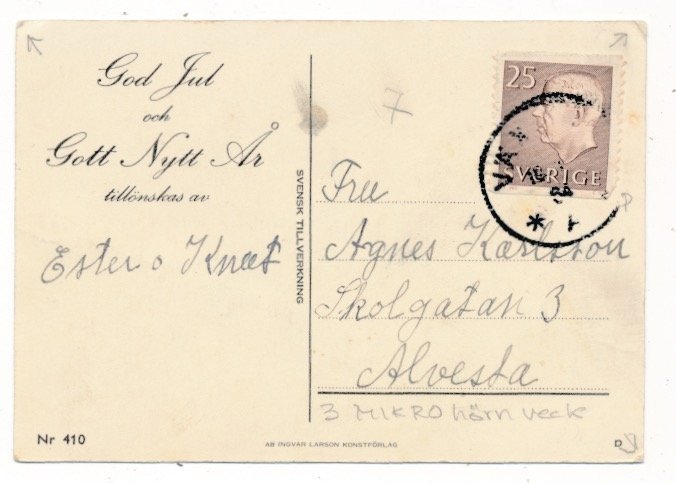 God Jul
och
Gott Nytt År
tillönskas av
Ester o Knut
Nr 410
SVENSK TILLVERKNING
AB INGVAR LARSON KONSTFÖRLAG
7
25
SVERIGE
Fru
Agnes Karlsson
Skolgatan 3
Alvesta
3 MIKRO hörn veck
D